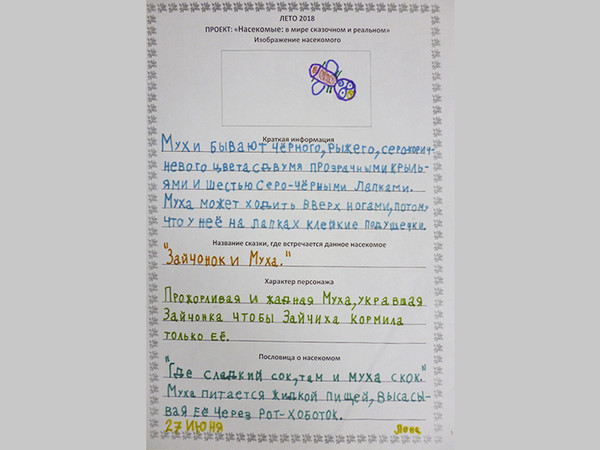 ЛЕТО 2018
ПРОЕКТ: «Насекомые: в мире сказочном и реальном»
Изображение насекомого
Краткая информация
Мухи бывают чёрного, рыжего, серо-корич-
невого цвета с двумя прозрачными крыль-
ями и шестью серо-чёрными лапками.
Муха может ходить вверх ногами, потому
что у неё на лапках клейкие подушечки.
Название сказки, где встречается данное насекомое
"Зайчонок и Муха."
Характер персонажа
Прожорливая и жадная Муха, укравшая
Зайчонка чтобы Зайчиха кормила
только её.
Пословица о насекомом
"Где сладкий сок, там и муха скок."
Муха питается жидкой пищей, высасы-
вая её через рот-хоботок.
27 июня